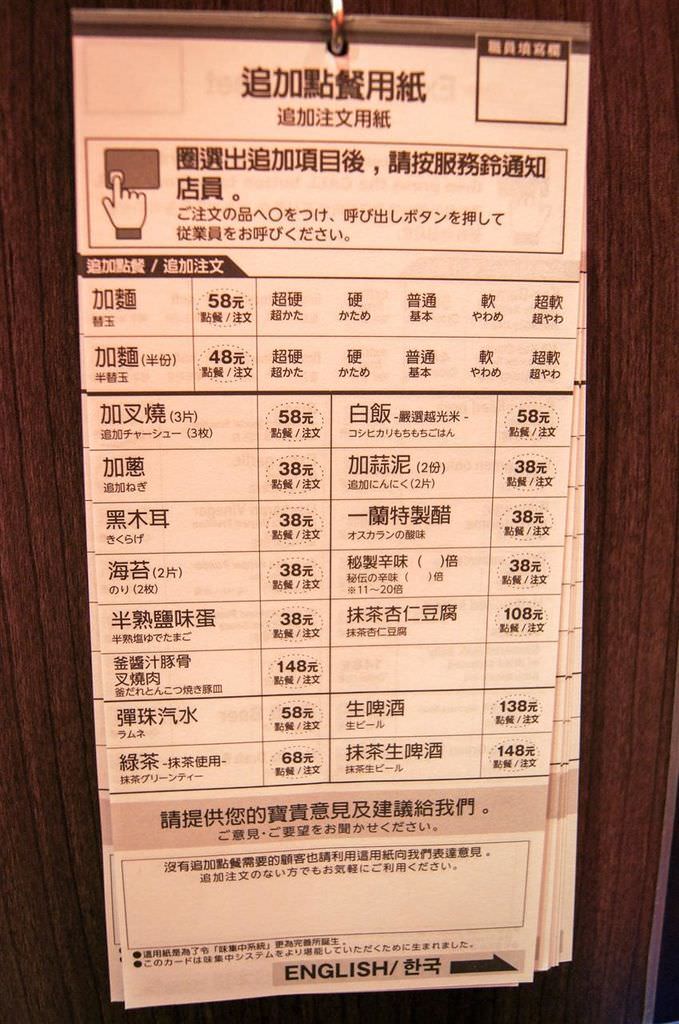 職員填寫欄
追加點餐用紙
追加注文用紙
圈選出追加項目後，請按服務鈴通知
店員。
ご注文の品へ〇をつけ、呼び出しボタンを押して
従業員をお呼びください。
追加點餐 / 追加注文
加麵 58元 超硬 硬 普通 軟 超軟
替玉 點餐 / 注文 超かた かため 基本 やわめ 超やわ
加麵(半份) 48元 超硬 硬 普通 軟 超軟
半替玉 點餐 / 注文 超かた かため 基本 やわめ 超やわ
加叉燒(3片) 58元 白飯 -嚴選越光米- 58元
追加チャーシュー(3枚) 點餐 / 注文 コシヒカリもちもちごはん 點餐 / 注文
加蔥 38元 加蒜泥(2份) 38元
追加ねぎ 點餐 / 注文 追加にんにく(2片) 點餐 / 注文
黑木耳 38元 一蘭特製醋 38元
きくらげ 點餐 / 注文 オスカランの酸味 點餐 / 注文
海苔(2片) 38元 秘製辛味 ( )倍 38元
のり(2枚) 點餐 / 注文 秘伝の辛味 ( )倍 點餐 / 注文
※11～20倍
半熟鹽味蛋 38元 抹茶杏仁豆腐 108元
半熟塩ゆでたまご 點餐 / 注文 抹茶杏仁豆腐 點餐 / 注文
釜醬汁豚骨 148元
叉燒肉 點餐 / 注文
釜だれとんこつ焼き豚皿
彈珠汽水 58元 生啤酒 138元
ラムネ 點餐 / 注文 生ビール 點餐 / 注文
綠茶 -抹茶使用- 68元 抹茶生啤酒 148元
抹茶グリーンティー 點餐 / 注文 抹茶生ビール 點餐 / 注文
請提供您的寶貴意見及建議給我們。
ご意見・ご要望をお聞かせください。
沒有追加點餐需要的顧客也請利用這用紙向我們表達意見。
追加注文のない方でもお気軽にご利用ください。
●這用紙是為了令「味集中系統」更為完善所誕生。
●このカードは味集中システムをより堪能していただくために生まれました。
ENGLISH/ 한국